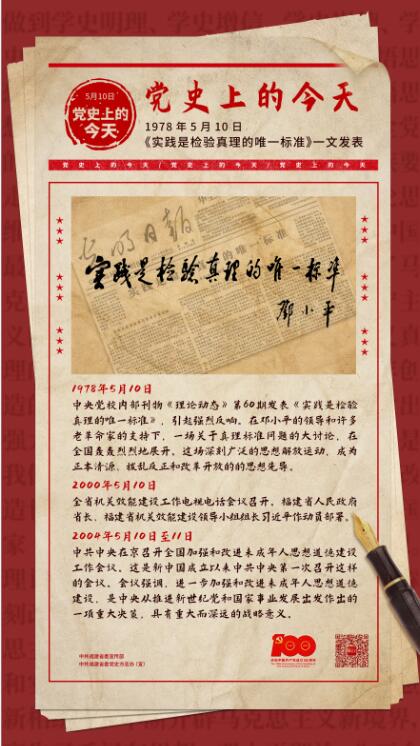 做到学史明理、学史增信
5月10日
党史上的
今天
党史上的今天
1978年5月10日
《实践是检验真理的唯一标准》一文发表
党史上的今天/党史上的今天/党史上的今天
光明日报
实践是检验真理的唯一标准
邓小平
1978年5月10日
中央党校内部刊物《理论动态》第60期发表《实践是检验
真理的唯一标准》，引起强烈反响。在邓小平的领导和许多
老革命家的支持下，一场关于真理标准问题的大讨论，在
全国轰轰烈烈地展开。这场深刻广泛的思想解放运动，成为
正本清源、拨乱反正和改革开放的的思想先导。
2000年5月10日
全省机关效能建设工作电视电话会议召开。福建省人民政府
省长、福建省机关效能建设领导小组组长习近平作动员部署。
2004年5月10日至11日
中共中央在京召开全国加强和改进未成年人思想道德建设
工作会议。这是新中国成立以来中共中央第一次召开这样
的会议。会议强调，进一步加强和改进未成年人思想道德
建设，是中央从推进新世纪党和国家事业发展出发作出的
一项重大决策，具有重大而深远的战略意义。
中共福建省委宣传部
中共福建省委党史方志办（宣）
100
庆祝中国共产党成立100周年